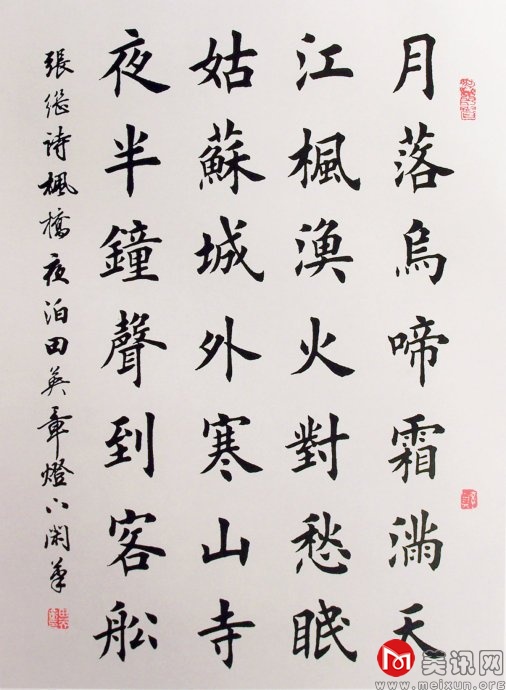 月落烏啼霜滿天
江楓漁火對愁眠
姑蘇城外寒山寺
夜半鐘聲到客船
張繼詩楓橋夜泊田英章燈下閑筆
美讯网
www.meixun.org